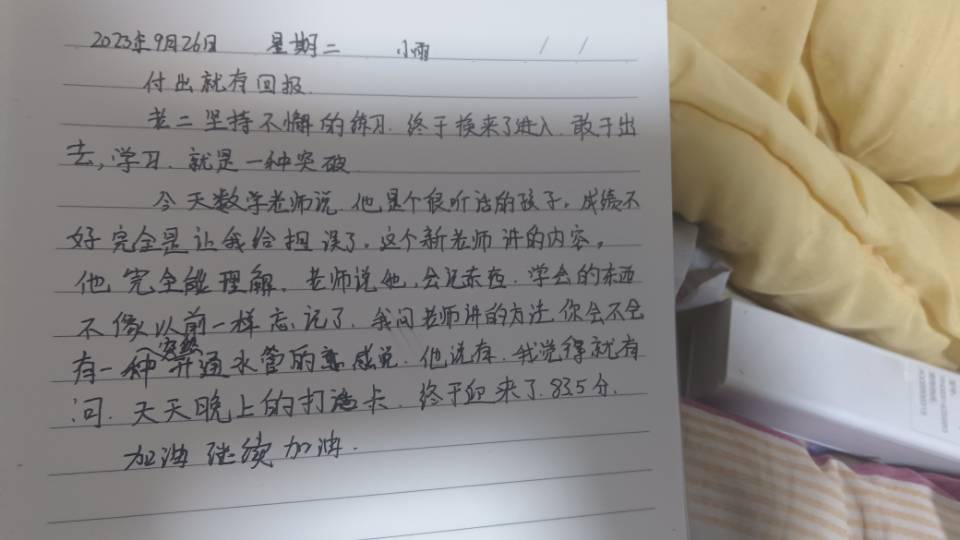 2023年9月26日 星期二 小雨 / /
付出就有回报.
老二坚持不懈的练习.终于换来了进入.敢于出
去,学习.就是一种突破
今天数学老师说.他是个很听话的孩子。成绩不
好完全是让我给担误了。这个新老师讲的内容。
他完全能理解。老师说他.会记东西.学会的东西
不像以前一样忘记了.我问老师讲的方法.你会不会
有一种突然开通水管的感觉.他说有.我觉得就有
问.天天晚上的打卡.终于迎来了.83.5分.
加油继续加油.